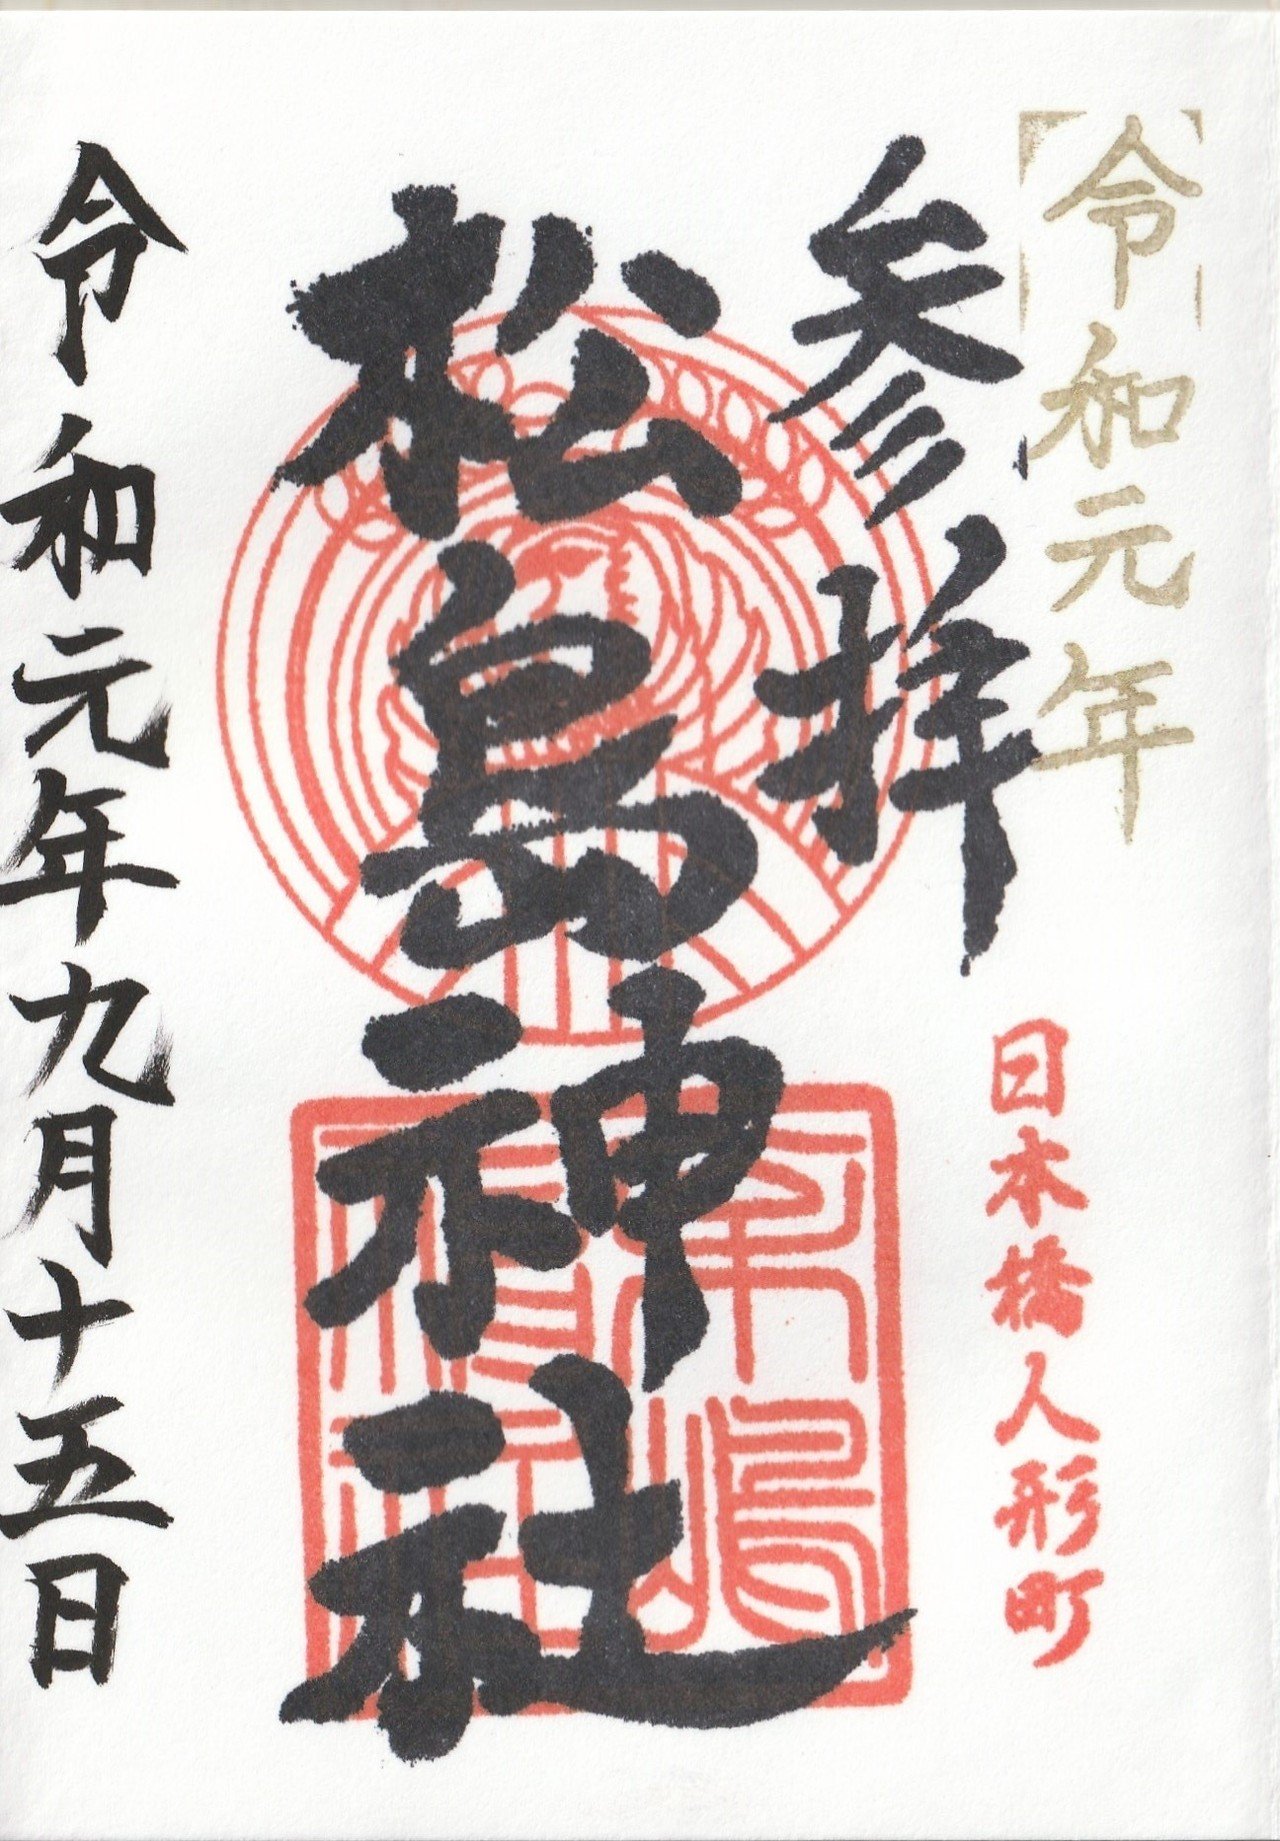 令和元年
参拝
日本橋人形町
松島神社
令和元年九月十五日